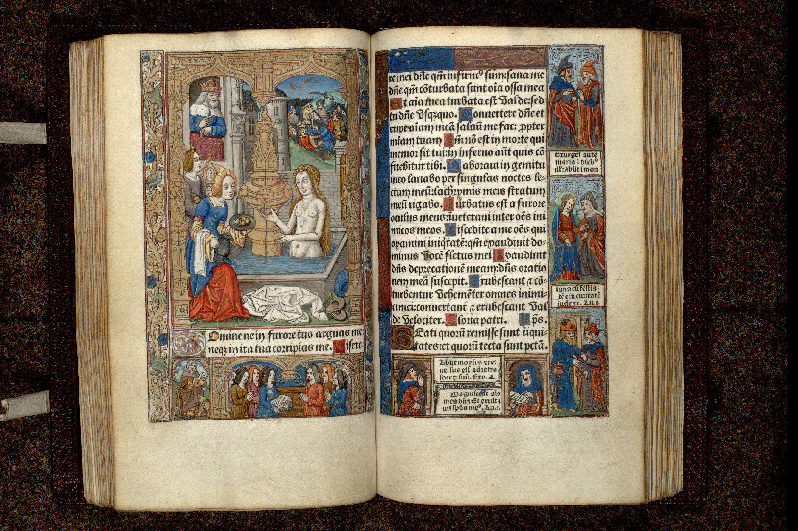 Omine ne in furore tuo arguas me
neq̃ in ira tua corripias me. Misere
re mei dñe qm̃ infirmꝰ sum: sana me
dñe qm̃ cõturbata sunt oĩa ossa mea
Et aĩa mea turbata est valde: sed
tu dñe vsq̃quo. Conuertere dñe et
eripe aĩam meã: saluũ me fac ꝓpter
miam̃ tuam. Qm̃ nõ est in morte qui
memor sit tui: in inferno aũt quis cõ
fitebitur tibi. Laboraui in gemitu
meo lauabo per singulas noctes le
ctum meũ: lachrymis meis stratum
meũ rigabo. Turbatus est a furore
oculus meus: inueteraui inter oẽs ini
micos meos. Discedite a me oẽs qui
operamini iniq̃tatẽ: qm̃ exaudiuit do
minus vocẽ fletus mei. Exaudiuit
dñs deprecationẽ meam: dñs oratio
nem meã suscepit. Erubescant ⁊ cõ
turbentur vehemẽter omnes inimi
ci mei: conuertant̃ ⁊ erubescant val
de velociter. Gloria patri. Ps.
Beati quorũ remisse sunt iniqui
tates: et quorũ tecta sunt pctã.
Exurgẽs autẽ
maria ĩ dieb
illꝭ abiit ĩ mon